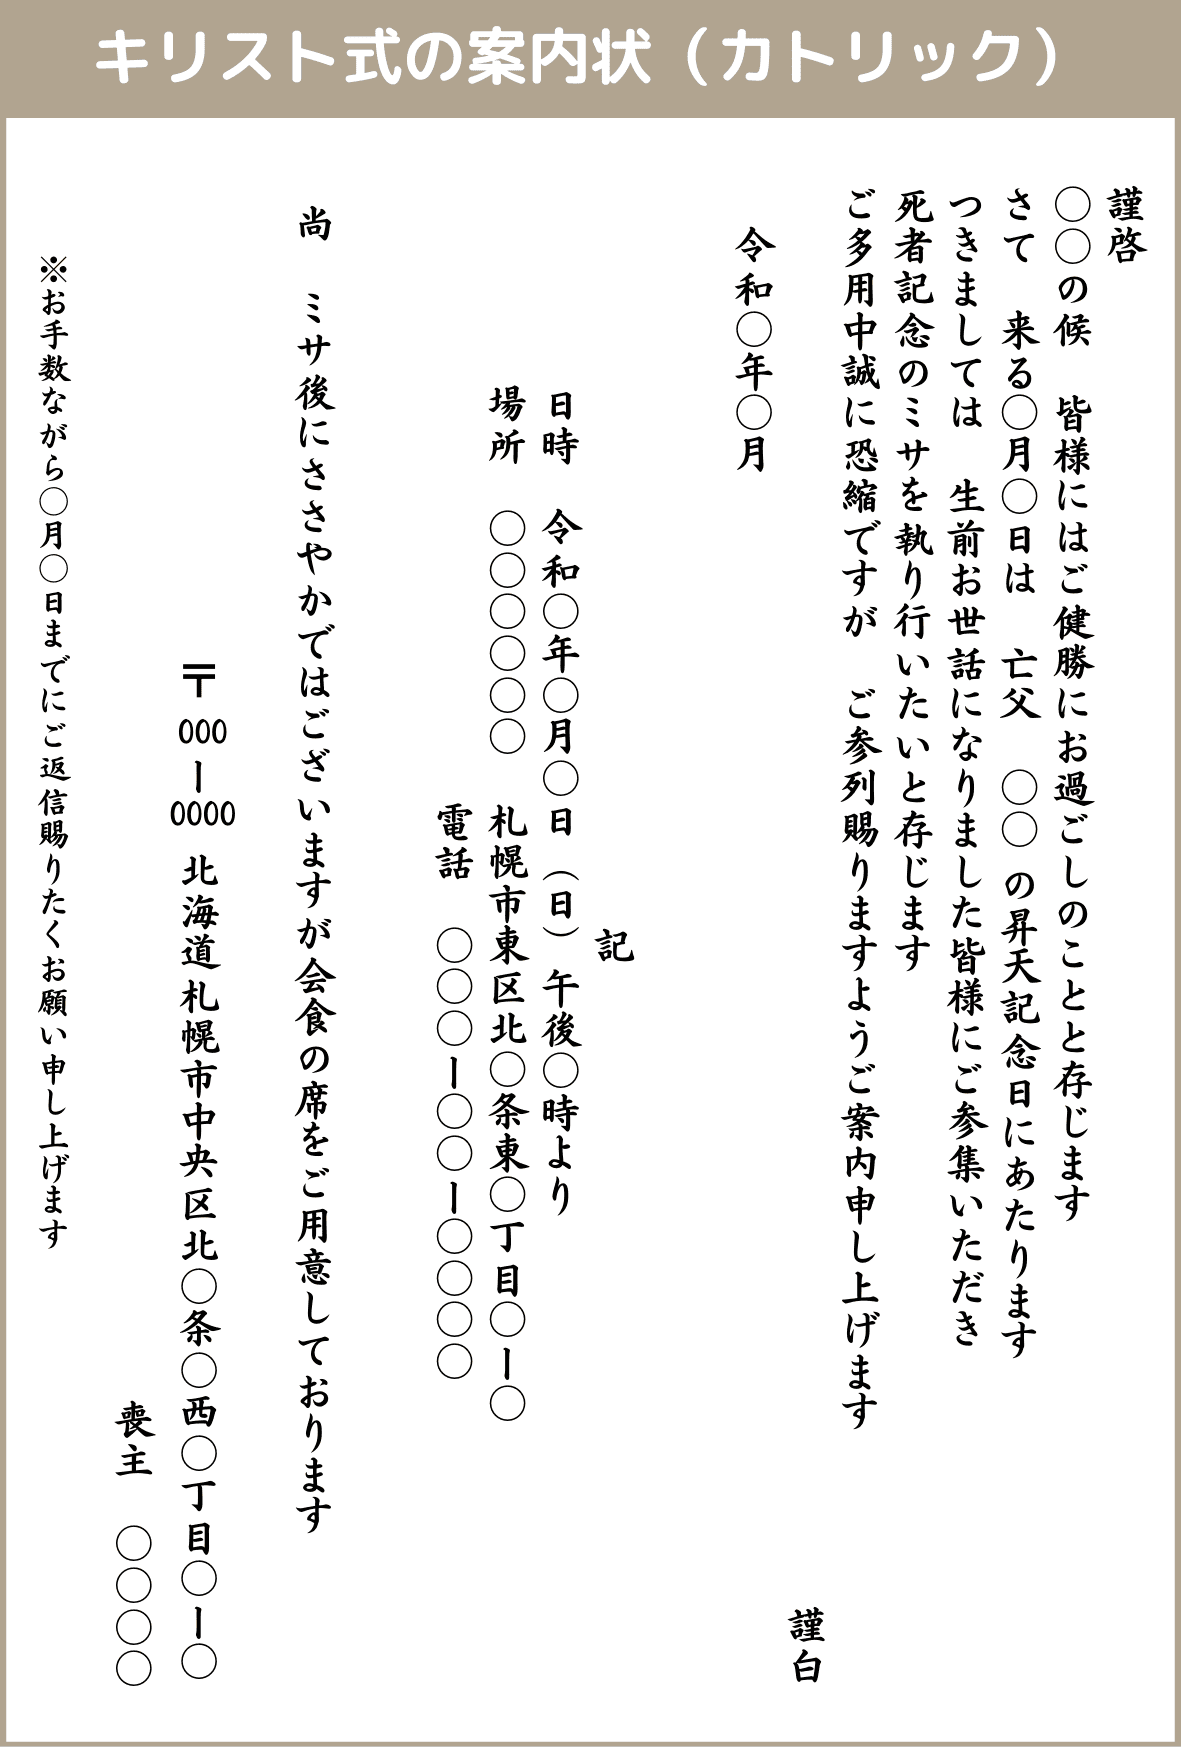 キリスト式の案内状（カトリック）
謹啓
〇〇の候　皆様にはご健勝にお過ごしのことと存じます
さて　来る〇月〇日は　亡父　〇〇の昇天記念日にあたります
つきましては　生前お世話になりました皆様にご参集いただき
死者記念のミサを執り行いたいと存じます
ご多用中誠に恐縮ですが　ご参列賜りますようご案内申し上げます
謹白
令和〇年〇月
記
日時　令和〇年〇月〇日（日）午後〇時より
場所　〇〇〇〇〇〇　札幌市東区北〇条東〇丁目〇ー〇
電話　〇〇〇ー〇〇ー〇〇〇〇
尚　ミサ後にささやかではございますが会食の席をご用意しております
〒000ー0000 北海道札幌市中央区北〇条〇西〇丁目〇ー〇
喪主　〇〇〇〇
※お手数ながら〇月〇日までにご返信賜りたくお願い申し上げます